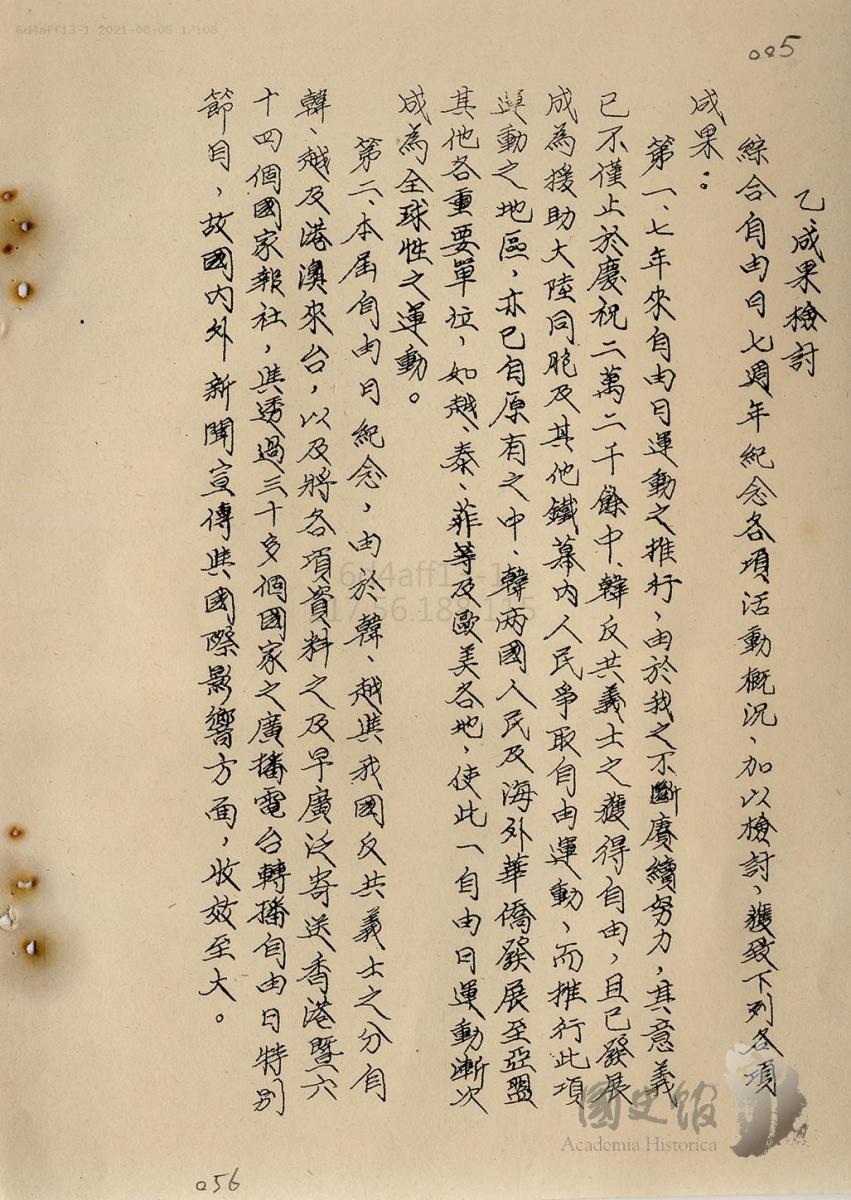 6d4aff13-1 2021-08-05 17:08
005
乙、成果檢討
綜合自由日七週年紀念各項活動概況、加以檢討，獲致下列各項
成果：
第一、七年來自由日運動之推行，由於我之不斷賡續努力，其意義
已不僅止於慶祝二萬二千餘中、韓反共義士之獲得自由，且已發展
成為援助大陸同胞及其他鐵幕內人民爭取自由運動，而推行此項
運動之地區，亦已自原有之中、韓兩國人民及海外華僑發展至亞盟
其他各重要單位，如越、泰、菲等及歐美各地，使此一自由日運動漸次
成為全球性之運動。
第二、本屆自由日紀念，由於韓、越與我國反共義士之分自
韓、越及港澳來台，以及將各項資料之及早廣泛寄送香港暨六
十四個國家報社，與透過三十多個國家之廣播電台轉播自由日特別
節目，故國內外新聞宣傳與國際影響方面，收效至大。
國史館
Academia Historica
056